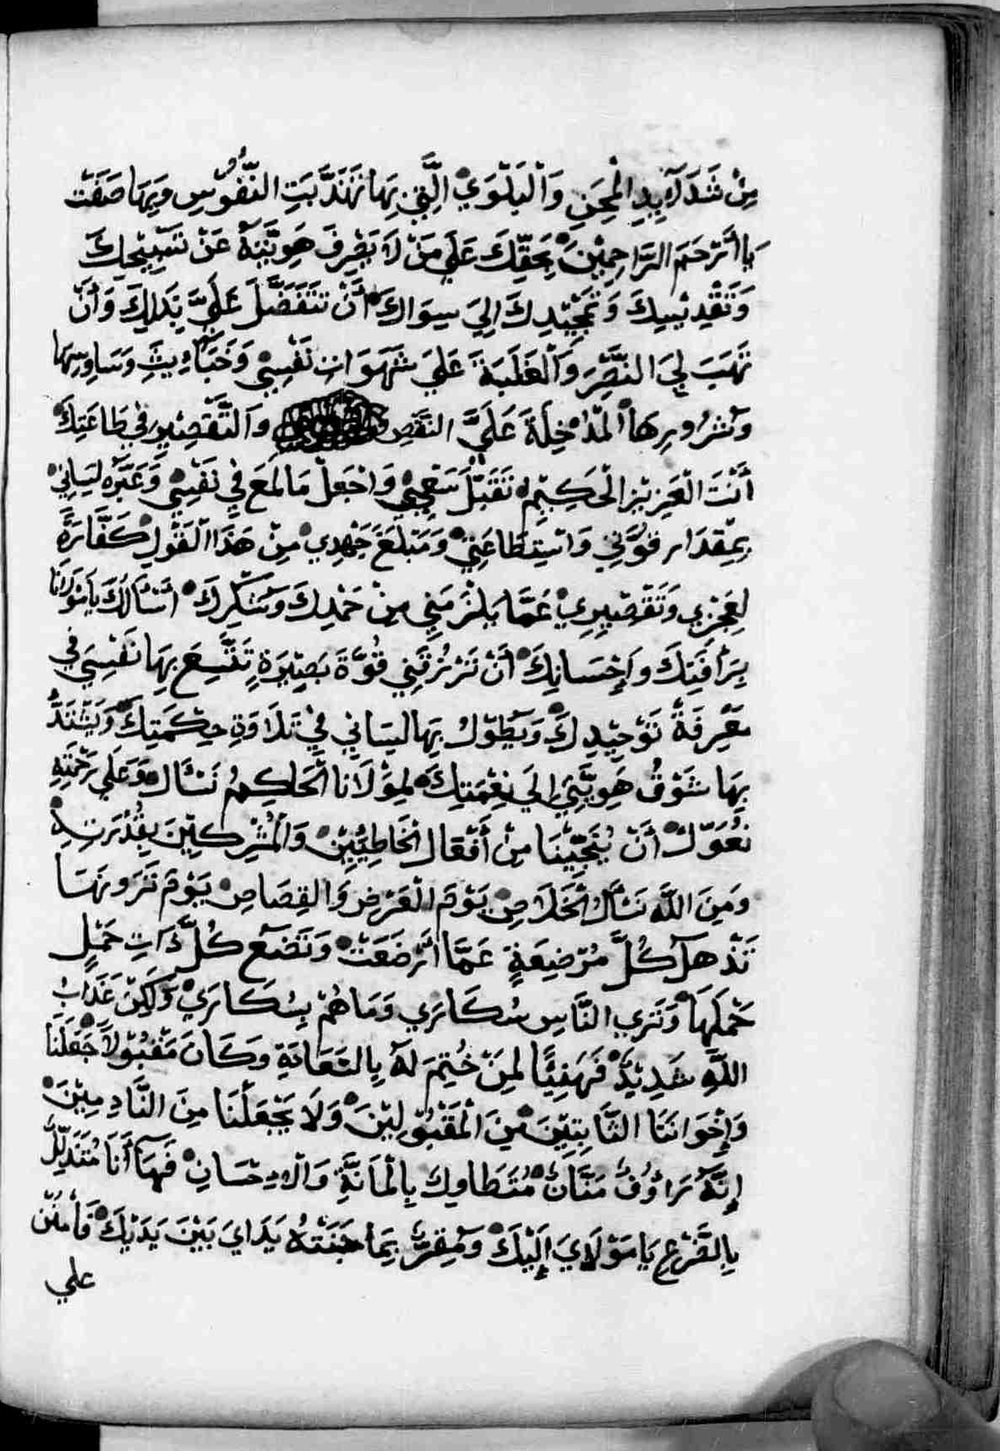 مِنْ شَدَآيِدِ الْمِحَنِ وَالْبَلْوَي الَّتِي بِهَا تَهَذَّبَتِ النُّفُوسِ وَبِهَا صَفَتْ
يَا أَرْحَمَ الرَّاحِمِيْنَ بِحَقِّكَ عَلَي مَنْ لَا يَصْرِفَ هَوِيَّتَهُ عَنْ تَسْبِيْحِكَ
وَتَقْدِيْسِكَ وَتَمْجِيْدِكَ اِلَيَ سِوَاكَ أَنْ تَتَفَضَّلَ عَلَيَّ بِذَلِكَ وَأَنْ
تَهَبَ لِيَ النَّصْرَ وَالْغَلَبَةَ عَلَيَ شَهَوَاتِ نَفْسِي وَخَبَآيِثِ وَسَاوِسِهَا
وَشُرُورِهَا الْمُدْخِلَةَ عَلَيَّ النَّقْصِ وَالتَّقْصِيْرِ فِي طَاعَتِكَ
أَنْتَ الْعَزِيْزُ الْحَكِيْمُ تَقَبَّلْ سَعْيِي وَاجْعَلْ مَا لَمَعَ فِي نَفْسِي وَعَبَّرَهُ لِسَانِي
بِمِقْدَارِ قُوَّتِي وَاسْتِطَاعَتِي وَمَبْلَغَ جَهْدِي مِنْ هَذَا الْقَوْلِ كَفَّارَةً
لِعَجْزِي وَتَقْصِيْرِي عَمَّا يَلْزَمَنِي مِنْ حَمْدِكَ وَشُكْرِكَ أَسْأَلُكَ يَا مَوْلَانَا
بِرَأْفَتِكَ وَإِحْسَانِكَ أَنْ تَرْزُقَنِي قُوَّةَ بَصِيْرَةٍ تَتَّسِعَ بِهَا نَفْسِيَ فِي
مَعْرِفَةُ تَوْحِيْدِكَ وَيَطُوْلُ بِهَا لِسَانِي فِي تَلَاوَةِ حِكْمَتِكَ وَيَشْتَدُّ
بِهَا شَوْقُ هَوِيَّتِي إِلَي نِعْمَتِكَ لِمَوْلَانَا الْحَاكِمُ نَسْأَلُ وَعَلَي رَحْمَتِهِ
نُعَوِّلُ أَنْ يُنَجِّيْنَا مِنْ أَفْعَالِ الْخَاطِيِيْنِ وَالْمُشْرِكِيْنَ بِقُدْرَتِهِ
وَمِنَ اللَّهِ نَسْأَلُ الْخَلَاصِ يَوْمَ الْعَرْضِ وَالْقِصَاصِ يَوْمَ تَرَوْنَهَا
تَذْهَلُ كُلَّ مُرْضِعَةٍ عَمَّا أَرْضَعَتْ وَتَضَعُ كُلَّ ذَاتِ حَمْلٍ
حَمْلَهَا وَتَرَي النَّاسِ سُكَارَي وَمَا هُمْ بِسُكَارَي وَلَكِنْ عَذَابُ
اللَّهِ شَدِيْدٌ فَهَنِيًّا لِمَنْ خُتِمَ لَهُ بِالسَّعَادَةِ وَكَانَ مَقْبُوْلًا جَعَلَنَا
وَإِخْوَانَنَا الثَّابِتِيْنَ مِنَ الْمَقْبُوْلِيْنَ وَلَا يَجْعَلْنَا مِنَ النَّادِمِيْنَ
إِنَّهُ رَاوُفُ مَنَّانُ مُتَطَاوِلُ بِالْمَانَّةِ وَالْاِحْسَانِ فَهَا أَنَا مُتَذَلِّلُ
بِالضَّرْعِ يَا مَوْلَايَ إِلَيْكَ وَمُقِرُّ بِمَا جَنَتْهُ يَدَايَ بَيْنَ يَدَيْكَ فَأَمْنُنْ
علي